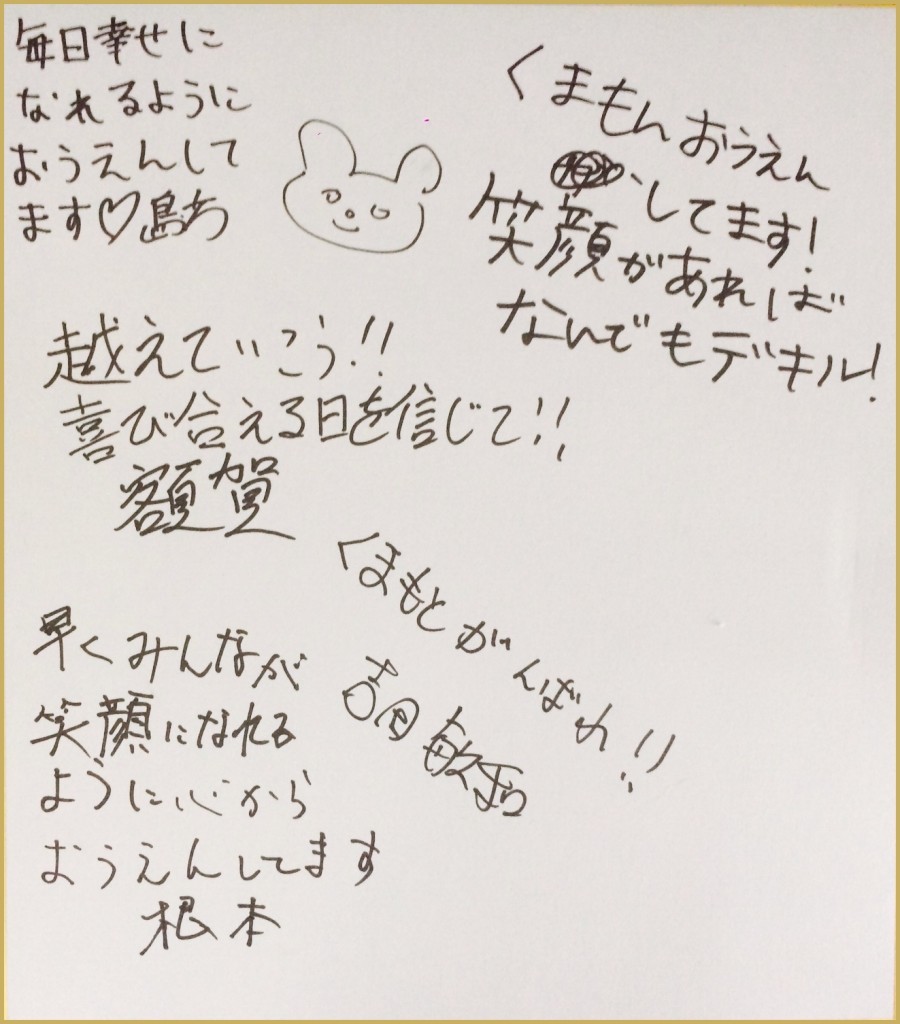 毎日幸せに
なれるように
おうえんして
ます♡島
くまもんおうえん
してます!
笑顔があれば
なんでもデキル!
越えていこう!!
喜び合える日を信じて!!
額賀
くまもとがんばれ!!
吉田敏
早くみんなが
笑顔になれる
ように心から
おうえんしてます
根本